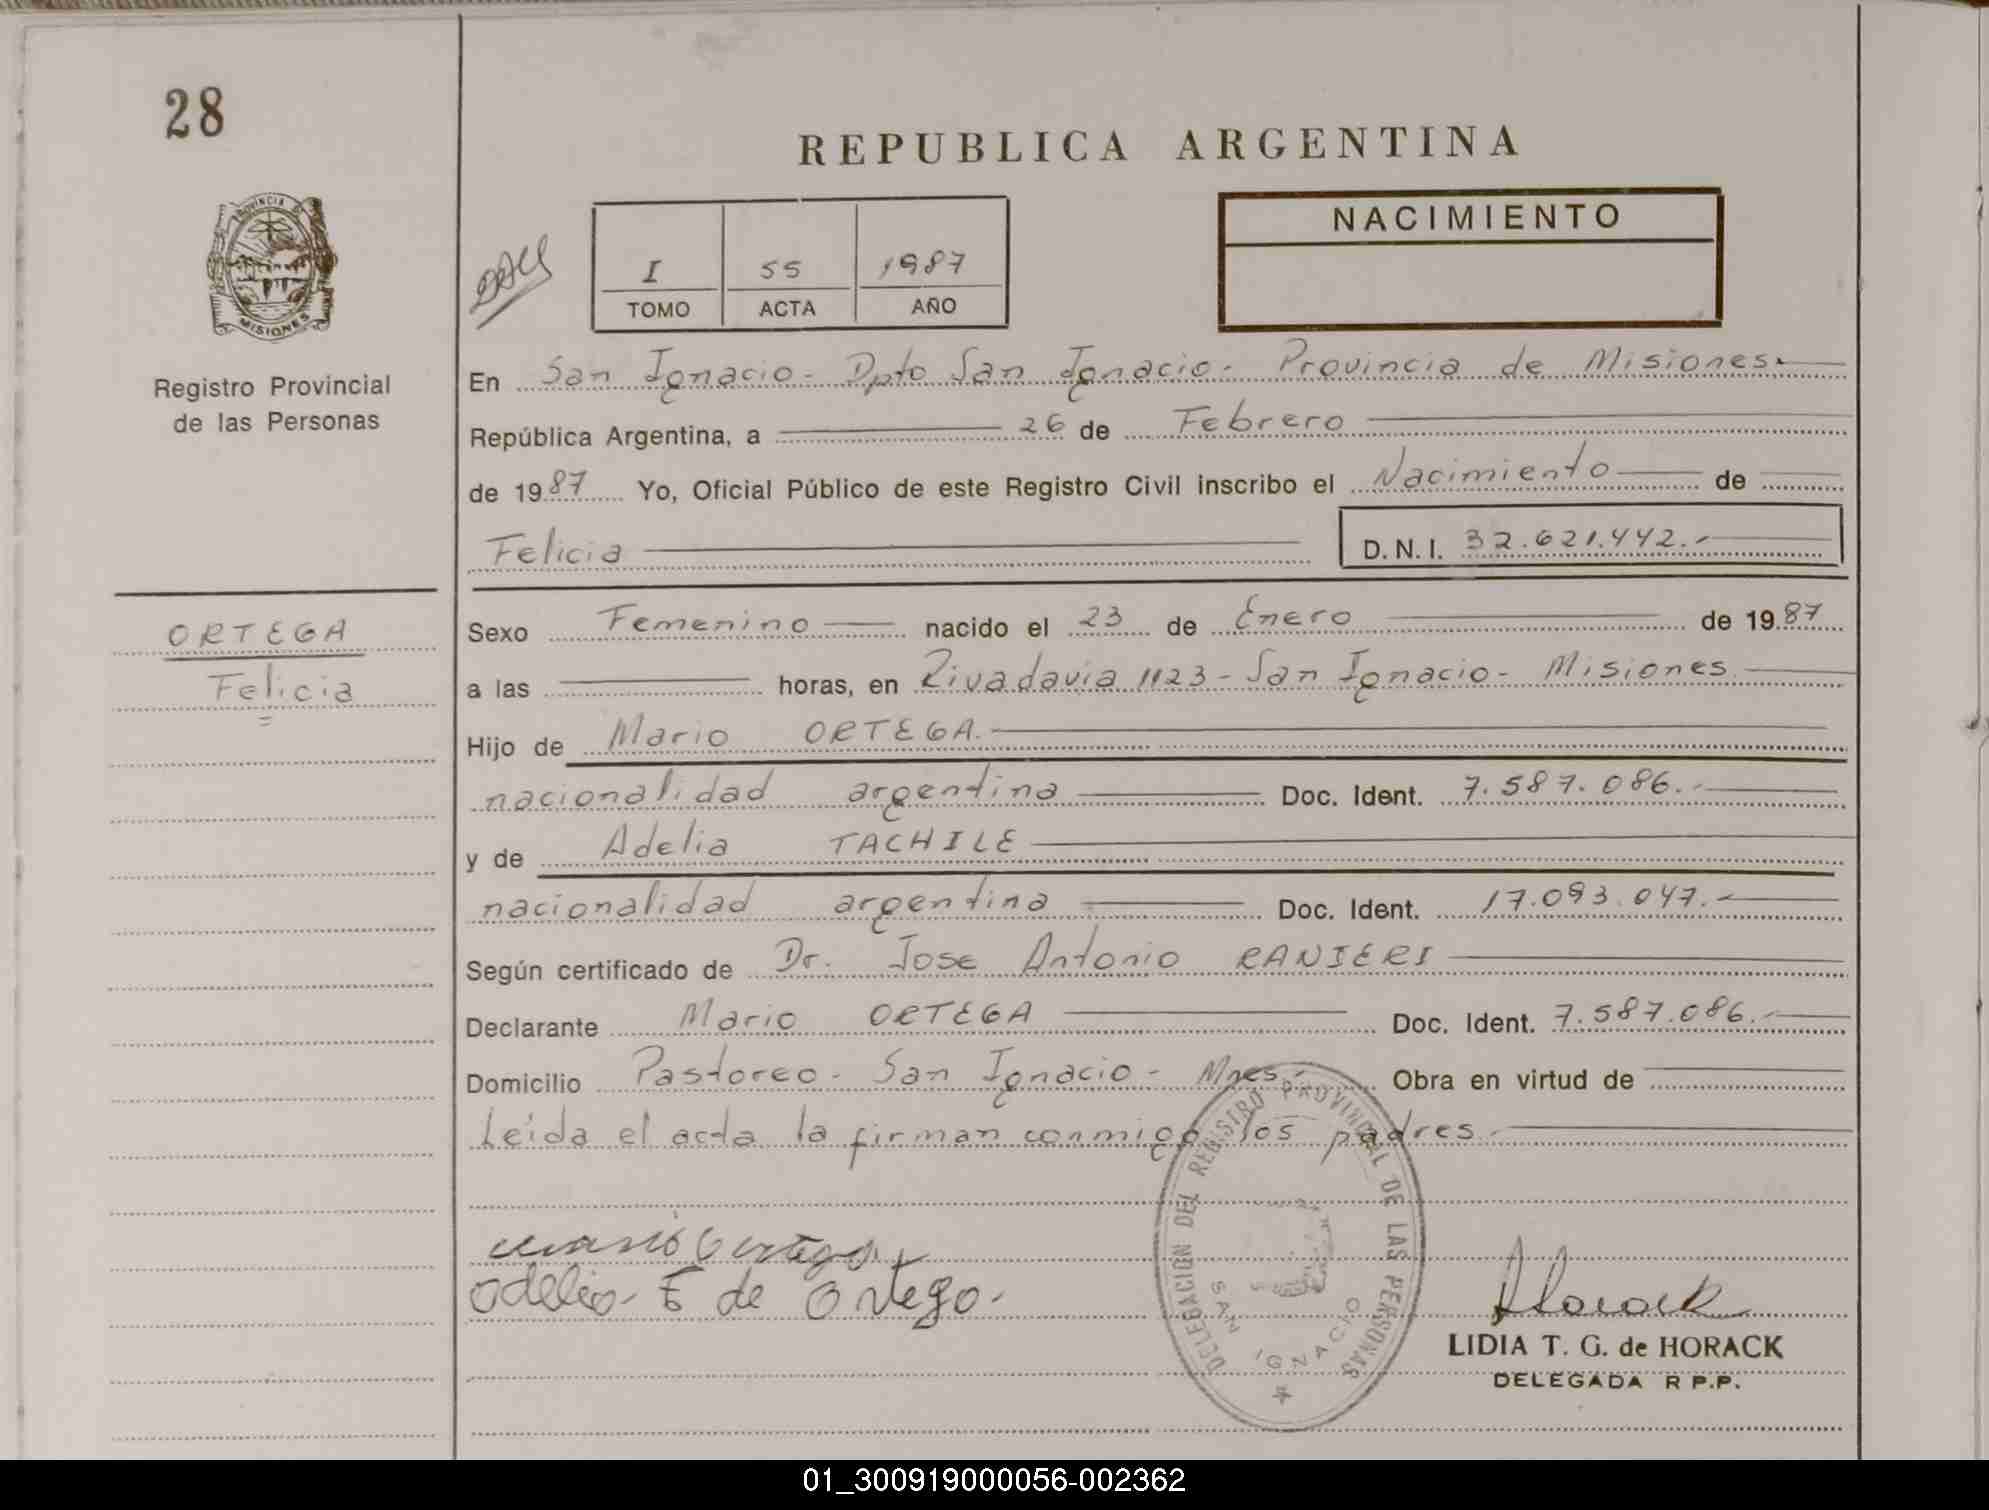 28
REPUBLICA ARGENTINA
NACIMIENTO
I 55 1987
TOMO ACTA AÑO
PROVINCIA DE
MISIONES
Registro Provincial
de las Personas
En San Ignacio - Dpto San Ignacio - Provincia de Misiones.
República Argentina, a 26 de Febrero
de 1987 Yo, Oficial Público de este Registro Civil inscribo el Nacimiento de
Felicia D.N.I. 32.621.442.-
ORTEGA
Felicia
Sexo Femenino nacido el 23 de Enero de 1987
a las horas, en Rivadavia 1123 - San Ignacio - Misiones
Hijo de Mario ORTEGA.
nacionalidad argentina Doc. Ident. 7.587.086.-
y de Adelia TACHILE
nacionalidad argentina Doc. Ident. 17.093.047.-
Según certificado de Dr. Jose Antonio RANIERI
Declarante Mario ORTEGA Doc. Ident. 7.587.086.-
Domicilio Pastoreo - San Ignacio - Mnes.- Obra en virtud de
Leída el acta la firman conmigo los padres.
DELEGACION DEL REGISTRO PROVINCIAL DE LAS PERSONAS
SAN IGNACIO
Mario Ortega
Odelio - E de Ortego.
Horack
LIDIA T. G. de HORACK
DELEGADA R P.P.
01_300919000056-002362